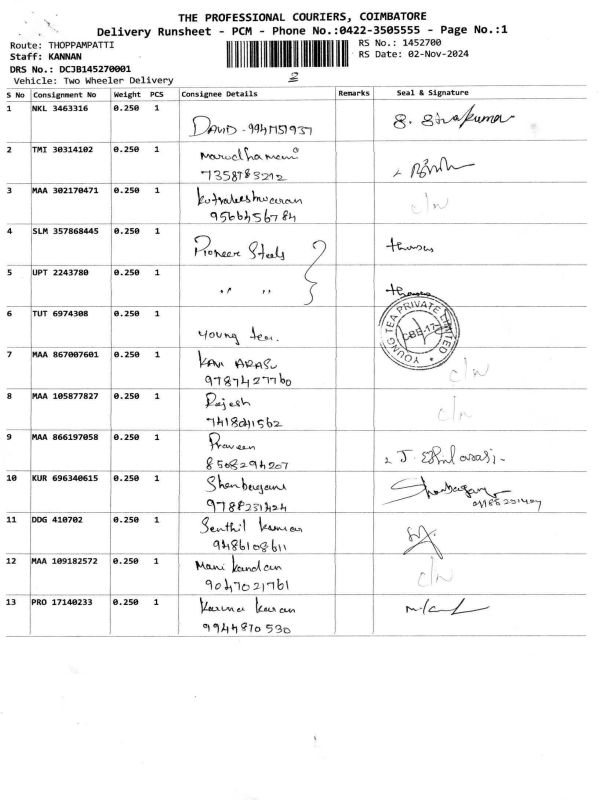 THE PROFESSIONAL COURIERS, COIMBATORE
Delivery Runsheet - PCM - Phone No.:0422-3505555 - Page No.:1
Route: THOPPAMPATTI RS No.: 1452700
Staff: KANNAN RS Date: 02-Nov-2024
DRS No.: DCJB145270001
Vehicle: Two Wheeler Delivery
S No Consignment No Weight PCS Consignee Details Remarks Seal & Signature
1 NKL 3463316 0.250 1
DAVID - 9941751937 S. Sivakumar
2 TMI 30314102 0.250 1 Marudhamani
7358783212
3 MAA 302170471 0.250 1 c/n
9566456784
4 SLM 357868445 0.250 1 Pioneer Steels
5 UPT 2243780 0.250 1 " "
6 TUT 6974308 0.250 1 young tea.
YOUNG TEA PRIVATE LIMITED
CBE-17
7 MAA 867007601 0.250 1 KAVI ARASU
9787427760 c/n
8 MAA 105877827 0.250 1 Rajesh c/n
7418041562
9 MAA 866197058 0.250 1 Praveen
8508294207 J. Ezhilarasi
10 KUR 696340615 0.250 1 Shenbagam Shenbagam
9788231424
11 DDG 410702 0.250 1 Senthil Kumar
9486108611
12 MAA 109182572 0.250 1 Mani Kandan c/n
9047021761
13 PRO 17140233 0.250 1 Karuna Karan
9944870530